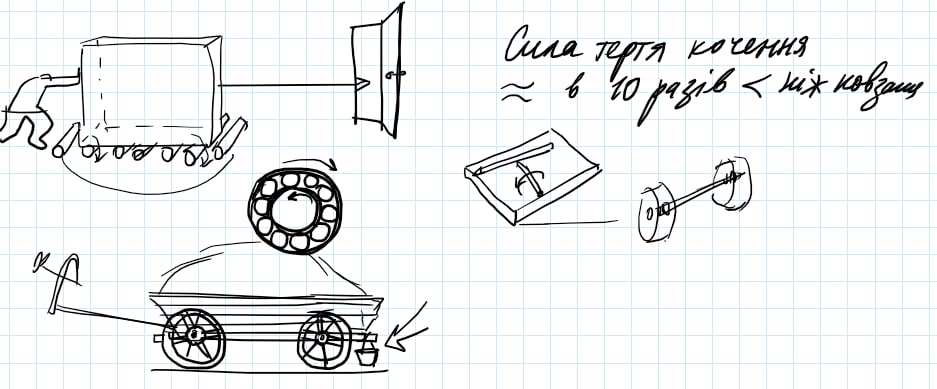 Сила тертя кочення
≈ в 10 разів < ніж ковзання